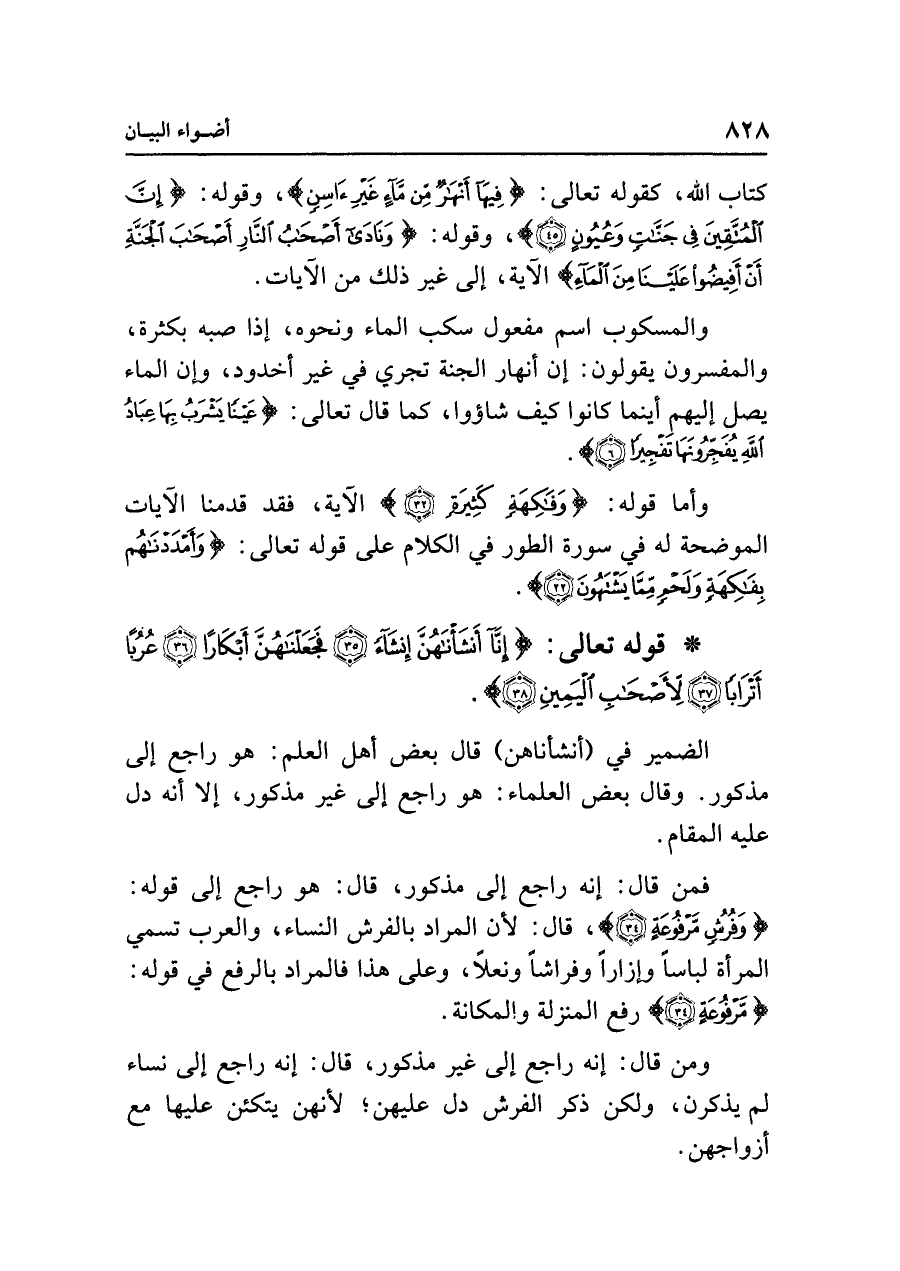 ٨٢٨ أضواء البيان
كتاب الله، كقوله تعالى: ﴿ فِيهَآ أَنْهَٰرٌ مِّن مَّآءٍ غَيْرِ ءَاسِنٍ﴾، وقوله: ﴿ إِنَّ
ٱلْمُتَّقِينَ فِى جَنَّٰتٍ وَعُيُونٍ ۝٤٥﴾، وقوله: ﴿ وَنَادَىٰٓ أَصْحَٰبُ ٱلنَّارِ أَصْحَٰبَ ٱلْجَنَّةِ
أَنْ أَفِيضُوا۟ عَلَيْنَا مِنَ ٱلْمَآءِ﴾ الآية، إلى غير ذلك من الآيات.
والمسكوب اسم مفعول سكب الماء ونحوه، إذا صبه بكثرة،
والمفسرون يقولون: إن أنهار الجنة تجري في غير أخدود، وإن الماء
يصل إليهم أينما كانوا كيف شاؤوا، كما قال تعالى: ﴿ عَيْنًا يَشْرَبُ بِهَا عِبَادُ
ٱللَّهِ يُفَجِّرُونَهَا تَفْجِيرًا ۝٦﴾.
وأما قوله: ﴿ وَفَٰكِهَةٍ كَثِيرَةٍ ۝٣٢﴾ الآية، فقد قدمنا الآيات
الموضحة له في سورة الطور في الكلام على قوله تعالى: ﴿ وَأَمْدَدْنَٰهُم
بِفَٰكِهَةٍ وَلَحْمٍ مِّمَّا يَشْتَهُونَ ۝٢٢﴾.
* قوله تعالى: ﴿ إِنَّآ أَنشَأْنَٰهُنَّ إِنشَآءً ۝٣٥ فَجَعَلْنَٰهُنَّ أَبْكَارًا ۝٣٦ عُرُبًا
أَتْرَابًا ۝٣٧ لِّأَصْحَٰبِ ٱلْيَمِينِ ۝٣٨﴾.
الضمير في (أنشأناهن) قال بعض أهل العلم: هو راجع إلى
مذكور. وقال بعض العلماء: هو راجع إلى غير مذكور، إلا أنه دل
عليه المقام.
فمن قال: إنه راجع إلى مذكور، قال: هو راجع إلى قوله:
﴿ وَفُرُشٍ مَّرْفُوعَةٍ ۝٣٤﴾، قال: لأن المراد بالفرش النساء، والعرب تسمي
المرأة لباساً وإزاراً وفراشاً ونعلاً، وعلى هذا فالمراد بالرفع في قوله:
﴿ مَّرْفُوعَةٍ ۝٣٤﴾ رفع المنزلة والمكانة.
ومن قال: إنه راجع إلى غير مذكور، قال: إنه راجع إلى نساء
لم يذكرن، ولكن ذكر الفرش دل عليهن؛ لأنهن يتكئن عليها مع
أزواجهن.